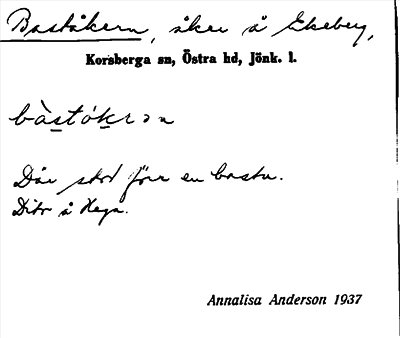 Baståkern, åker å Ekeberg,
Korsberga sn, Östra hd, Jönk. l.
bàstókrɔn
Där stod förr en bastu.
Dito å Haga.
Annalisa Anderson 1937